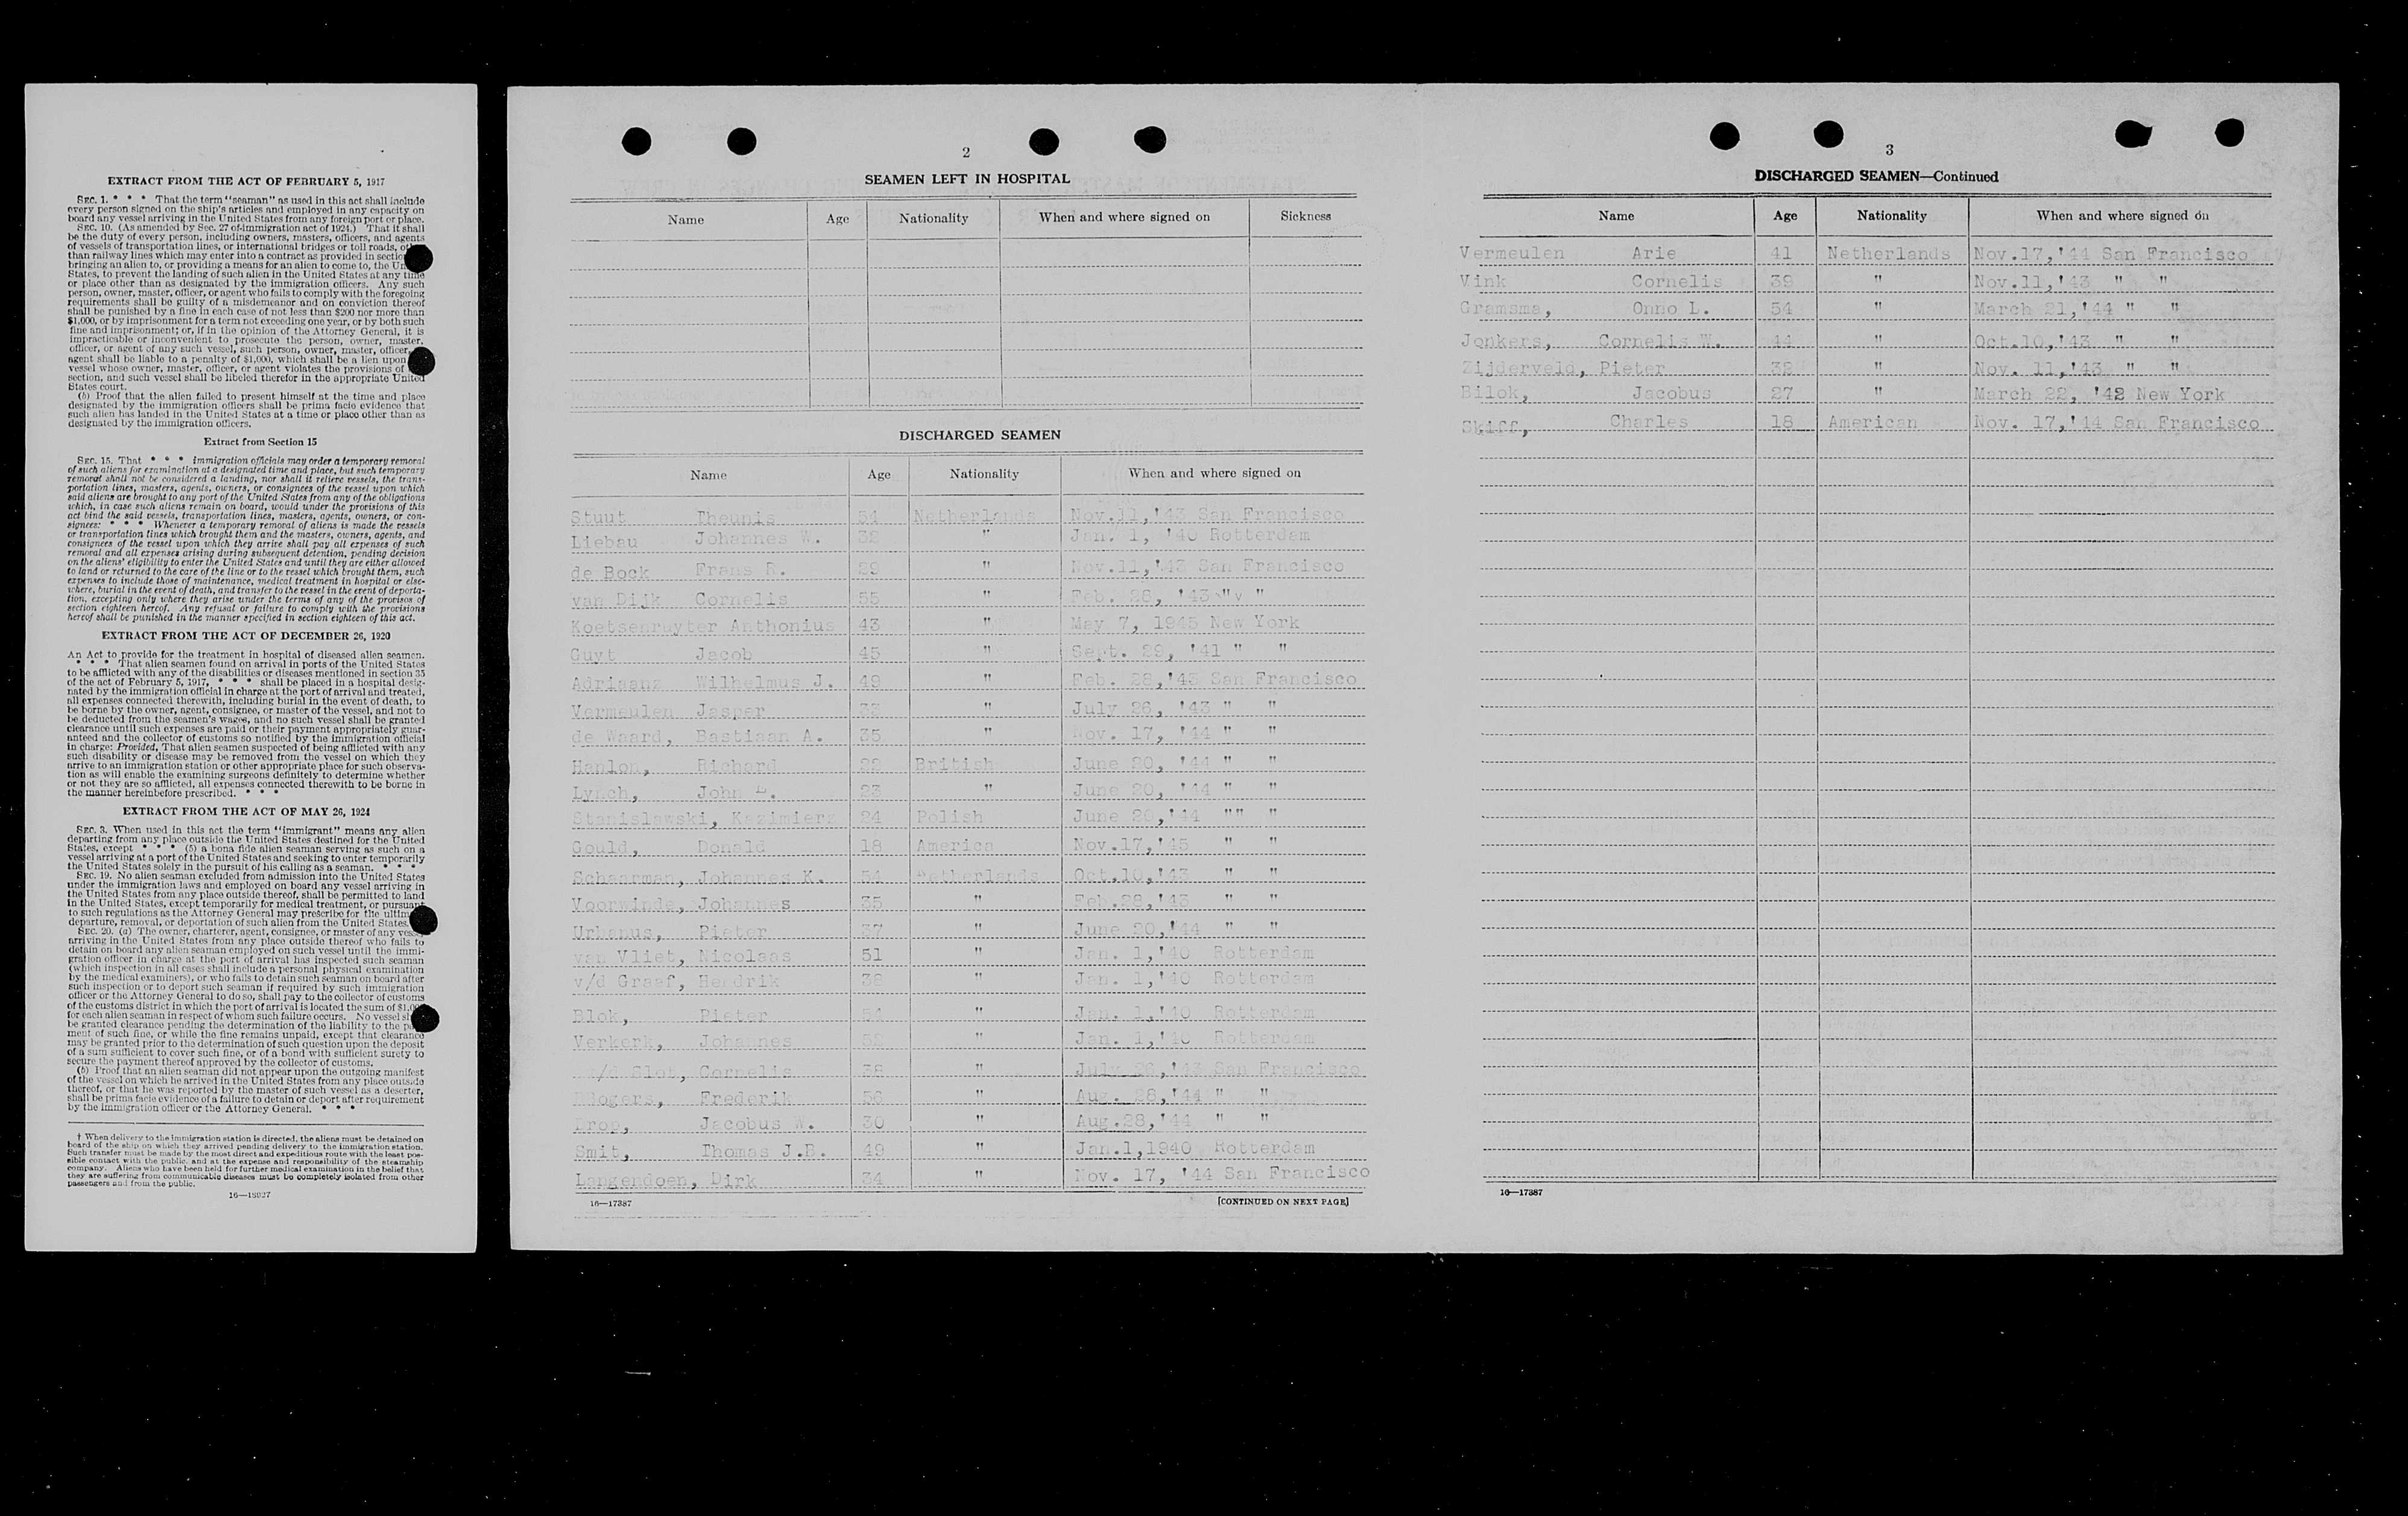 EXTRACT FROM THE ACT OF FEBRUARY 5, 1917
SEC. 1. * * * That the term "seaman" as used in this act shall include
every person signed on the ship's articles and employed in any capacity on
board any vessel arriving in the United States from any foreign port or place.
SEC. 10. (As amended by Sec. 27 of Immigration act of 1924.) That it shall
be the duty of every person, including owners, masters, officers, and agents
of vessels of transportation lines, or international bridges or toll roads,
than railway lines which may enter into a contract as provided in
bringing an alien to, or providing a means for an alien to come to, the
States, to prevent the landing of such alien in the United States at any time
or place other than as designated by the immigration officers. Any such
person, owner, master, officer, or agent who fails to comply with the foregoing
requirements shall be guilty of a misdemeanor and on conviction thereof
shall be punished by a fine in each case of not less than $200 nor more than
$1,000, or by imprisonment for a term not exceeding one year, or by both such
fine and imprisonment; or, if in the opinion of the Attorney General, it is
impracticable or inconvenient to prosecute the person, owner, master,
officer, or agent of any such vessel, such person, owner, master, officer,
agent shall be liable to a penalty of $1,000, which shall be a lien upon
vessel whose owner, master, officer, or agent violates the provisions of
section, and such vessel shall be libeled therefor in the appropriate United
States court.
(b) Proof that the alien failed to present himself at the time and place
designated by the immigration officers shall be prima facie evidence that
such alien has landed in the United States at a time or place other than as
designated by the immigration officers.
Extract from Section 15
SEC. 15. That * * * immigration officials may order a temporary removal
of such aliens for examination at a designated time and place, but such temporary
removal shall not be considered a landing, nor shall it relieve vessels, the trans-
portation lines, masters, agents, owners, or consignees of the vessel upon which
said aliens are brought to any port of the United States from any of the obligations
which, in case such aliens remain on board, would under the provisions of this
act bind the said vessels, transportation lines, masters, agents, owners, or con-
signees: * * * Whenever a temporary removal of aliens is made the vessels
or transportation lines which brought them and the masters, owners, agents, and
consignees of the vessel upon which they arrive shall pay all expenses of such
removal and all expenses arising during subsequent detention, pending decision
on the aliens' eligibility to enter the United States and until they are either allowed
to land or returned to the care of the line or to the vessel which brought them, such
expenses to include those of maintenance, medical treatment in hospital or else-
where, burial in the event of death, and transfer to the vessel in the event of deporta-
tion, excepting only where they arise under the terms of any of the provisos of
section eighteen hereof. Any refusal or failure to comply with the provisions
hereof shall be punished in the manner specified in section eighteen of this act.
EXTRACT FROM THE ACT OF DECEMBER 26, 1920
An Act to provide for the treatment in hospital of diseased alien seamen.
* * * That alien seamen found on arrival in ports of the United States
to be afflicted with any of the disabilities or diseases mentioned in section 35
of the act of February 5, 1917, * * * shall be placed in a hospital desig-
nated by the immigration official in charge at the port of arrival and treated,
all expenses connected therewith, including burial in the event of death, to
be borne by the owner, agent, consignee, or master of the vessel, and not to
be deducted from the seamen's wages, and no such vessel shall be granted
clearance until such expenses are paid or their payment appropriately guar-
anteed and the collector of customs so notified by the immigration official
in charge: Provided, That alien seamen suspected of being afflicted with any
such disability or disease may be removed from the vessel on which they
arrive to an immigration station or other appropriate place for such observa-
tion as will enable the examining surgeons definitely to determine whether
or not they are so afflicted, all expenses connected therewith to be borne in
the manner hereinbefore prescribed. * * *
EXTRACT FROM THE ACT OF MAY 26, 1924
SEC. 3. When used in this act the term "immigrant" means any alien
departing from any place outside the United States destined for the United
States, except * * * (5) a bona fide alien seaman serving as such on a
vessel arriving at a port of the United States and seeking to enter temporarily
the United States solely in the pursuit of his calling as a seaman. * * *
SEC. 19. No alien seaman excluded from admission into the United States
under the immigration laws and employed on board any vessel arriving in
the United States from any place outside thereof, shall be permitted to land
in the United States, except temporarily for medical treatment, or pursuant
to such regulations as the Attorney General may prescribe for the
departure, removal, or deportation of such alien from the United States.
SEC. 20. (a) The owner, charterer, agent, consignee, or master of any
arriving in the United States from any place outside thereof who fails to
detain on board any alien seaman employed on such vessel until the immi-
gration officer in charge at the port of arrival has inspected such seaman
(which inspection in all cases shall include a personal physical examination
by the medical examiners), or who fails to detain such seaman on board after
such inspection or to deport such seaman if required by such immigration
officer or the Attorney General to do so, shall pay to the collector of customs
of the customs district in which the port of arrival is located the sum of
for each alien seaman in respect of whom such failure occurs. No vessel
be granted clearance pending the determination of the liability to the
ment of such fine, or while the fine remains unpaid, except that clearance
may be granted prior to the determination of such question upon the deposit
of a sum sufficient to cover such fine, or of a bond with sufficient surety to
secure the payment thereof approved by the collector of customs.
(b) Proof that an alien seaman did not appear upon the outgoing manifest
of the vessel on which he arrived in the United States from any place outside
thereof, or that he was reported by the master of such vessel as a deserter,
shall be prima facie evidence of a failure to detain or deport after requirement
by the immigration officer or the Attorney General. * * *
† When delivery to the immigration station is directed, the aliens must be detained on
board of the ship on which they arrived pending delivery to the immigration station.
Such transfer must be made by the most direct and expeditious route with the least pos-
sible contact with the public, and at the expense and responsibility of the steamship
company. Aliens who have been held for further medical examination in the belief that
they are suffering from communicable diseases must be completely isolated from other
passengers and from the public.
2
SEAMEN LEFT IN HOSPITAL
Name Age Nationality When and where signed on Sickness
DISCHARGED SEAMEN
Name Age Nationality When and where signed on
Stuut Theunis 54 Netherlands Nov.11,'43 San Francisco
Liebau Johannes W. " Jan. 1, '40 Rotterdam
de Bock Frans R. 29 " Nov.11,'43 San Francisco
van Dijk Cornelis 55 " Feb. 28, '43 " "
Koetsenruyter Anthonius 43 " May 7, 1945 New York
Guyt Jacob 45 " Sept. 29, '41 " "
Adriaanz Wilhelmus J. 49 " Feb. 28,'43 San Francisco
Vermeulen Jasper 33 " July 26, '43 " "
de Waard, Bastiaan A. 35 " Nov. 17, '44 " "
Hanlon, Richard British June 20, '44 " "
Lynch, John 23 " June 20, '44 " "
Stanislawski, Kazimierz 24 Polish June 20,'44 "" "
Gould, Donald 18 America Nov.17,'45 " "
Schaarman, Johannes K. 54 Netherlands Oct.10,'43 " "
Voorwinde, Johannes 35 " Feb.28,'43 " "
Urbanus, Pieter 37 " June 20,'44 " "
van Vliet, Nicolaas 51 " Jan. 1,'40 Rotterdam
v/d Graaf, Hendrik 38 " Jan. 1,'40 Rotterdam
Blok, Pieter " Jan. 1,'40 Rotterdam
Verkerk, Johannes " Jan. 1,'40 Rotterdam
v/d Slot, Cornelis 38 " July 26,'43 San Francisco
Frederik 56 " Aug. 28,'44 " "
Drop, Jacobus W. 30 " Aug.28,'44 " "
Smit, Thomas J.B. 49 " Jan.1,1940 Rotterdam
Langendoen, Dirk 34 " Nov. 17, '44 San Francisco
16—17387 [CONTINUED ON NEXT PAGE]
3
DISCHARGED SEAMEN—Continued
Name Age Nationality When and where signed on
Vermeulen Arie 41 Netherlands Nov.17,'44 San Francisco
Vink Cornelis " Nov.11,'43 " "
Gramsma, Onno L. 54 " March 21,'44 " "
Jonkers, Cornelis W. 44 " Oct.10,'43 " "
Zijderveld, Pieter " Nov. 11,'43 " "
Bilok, Jacobus 27 " March 22, '42 New York
Skiff, Charles 18 American Nov. 17,'44 San Francisco
16—17387